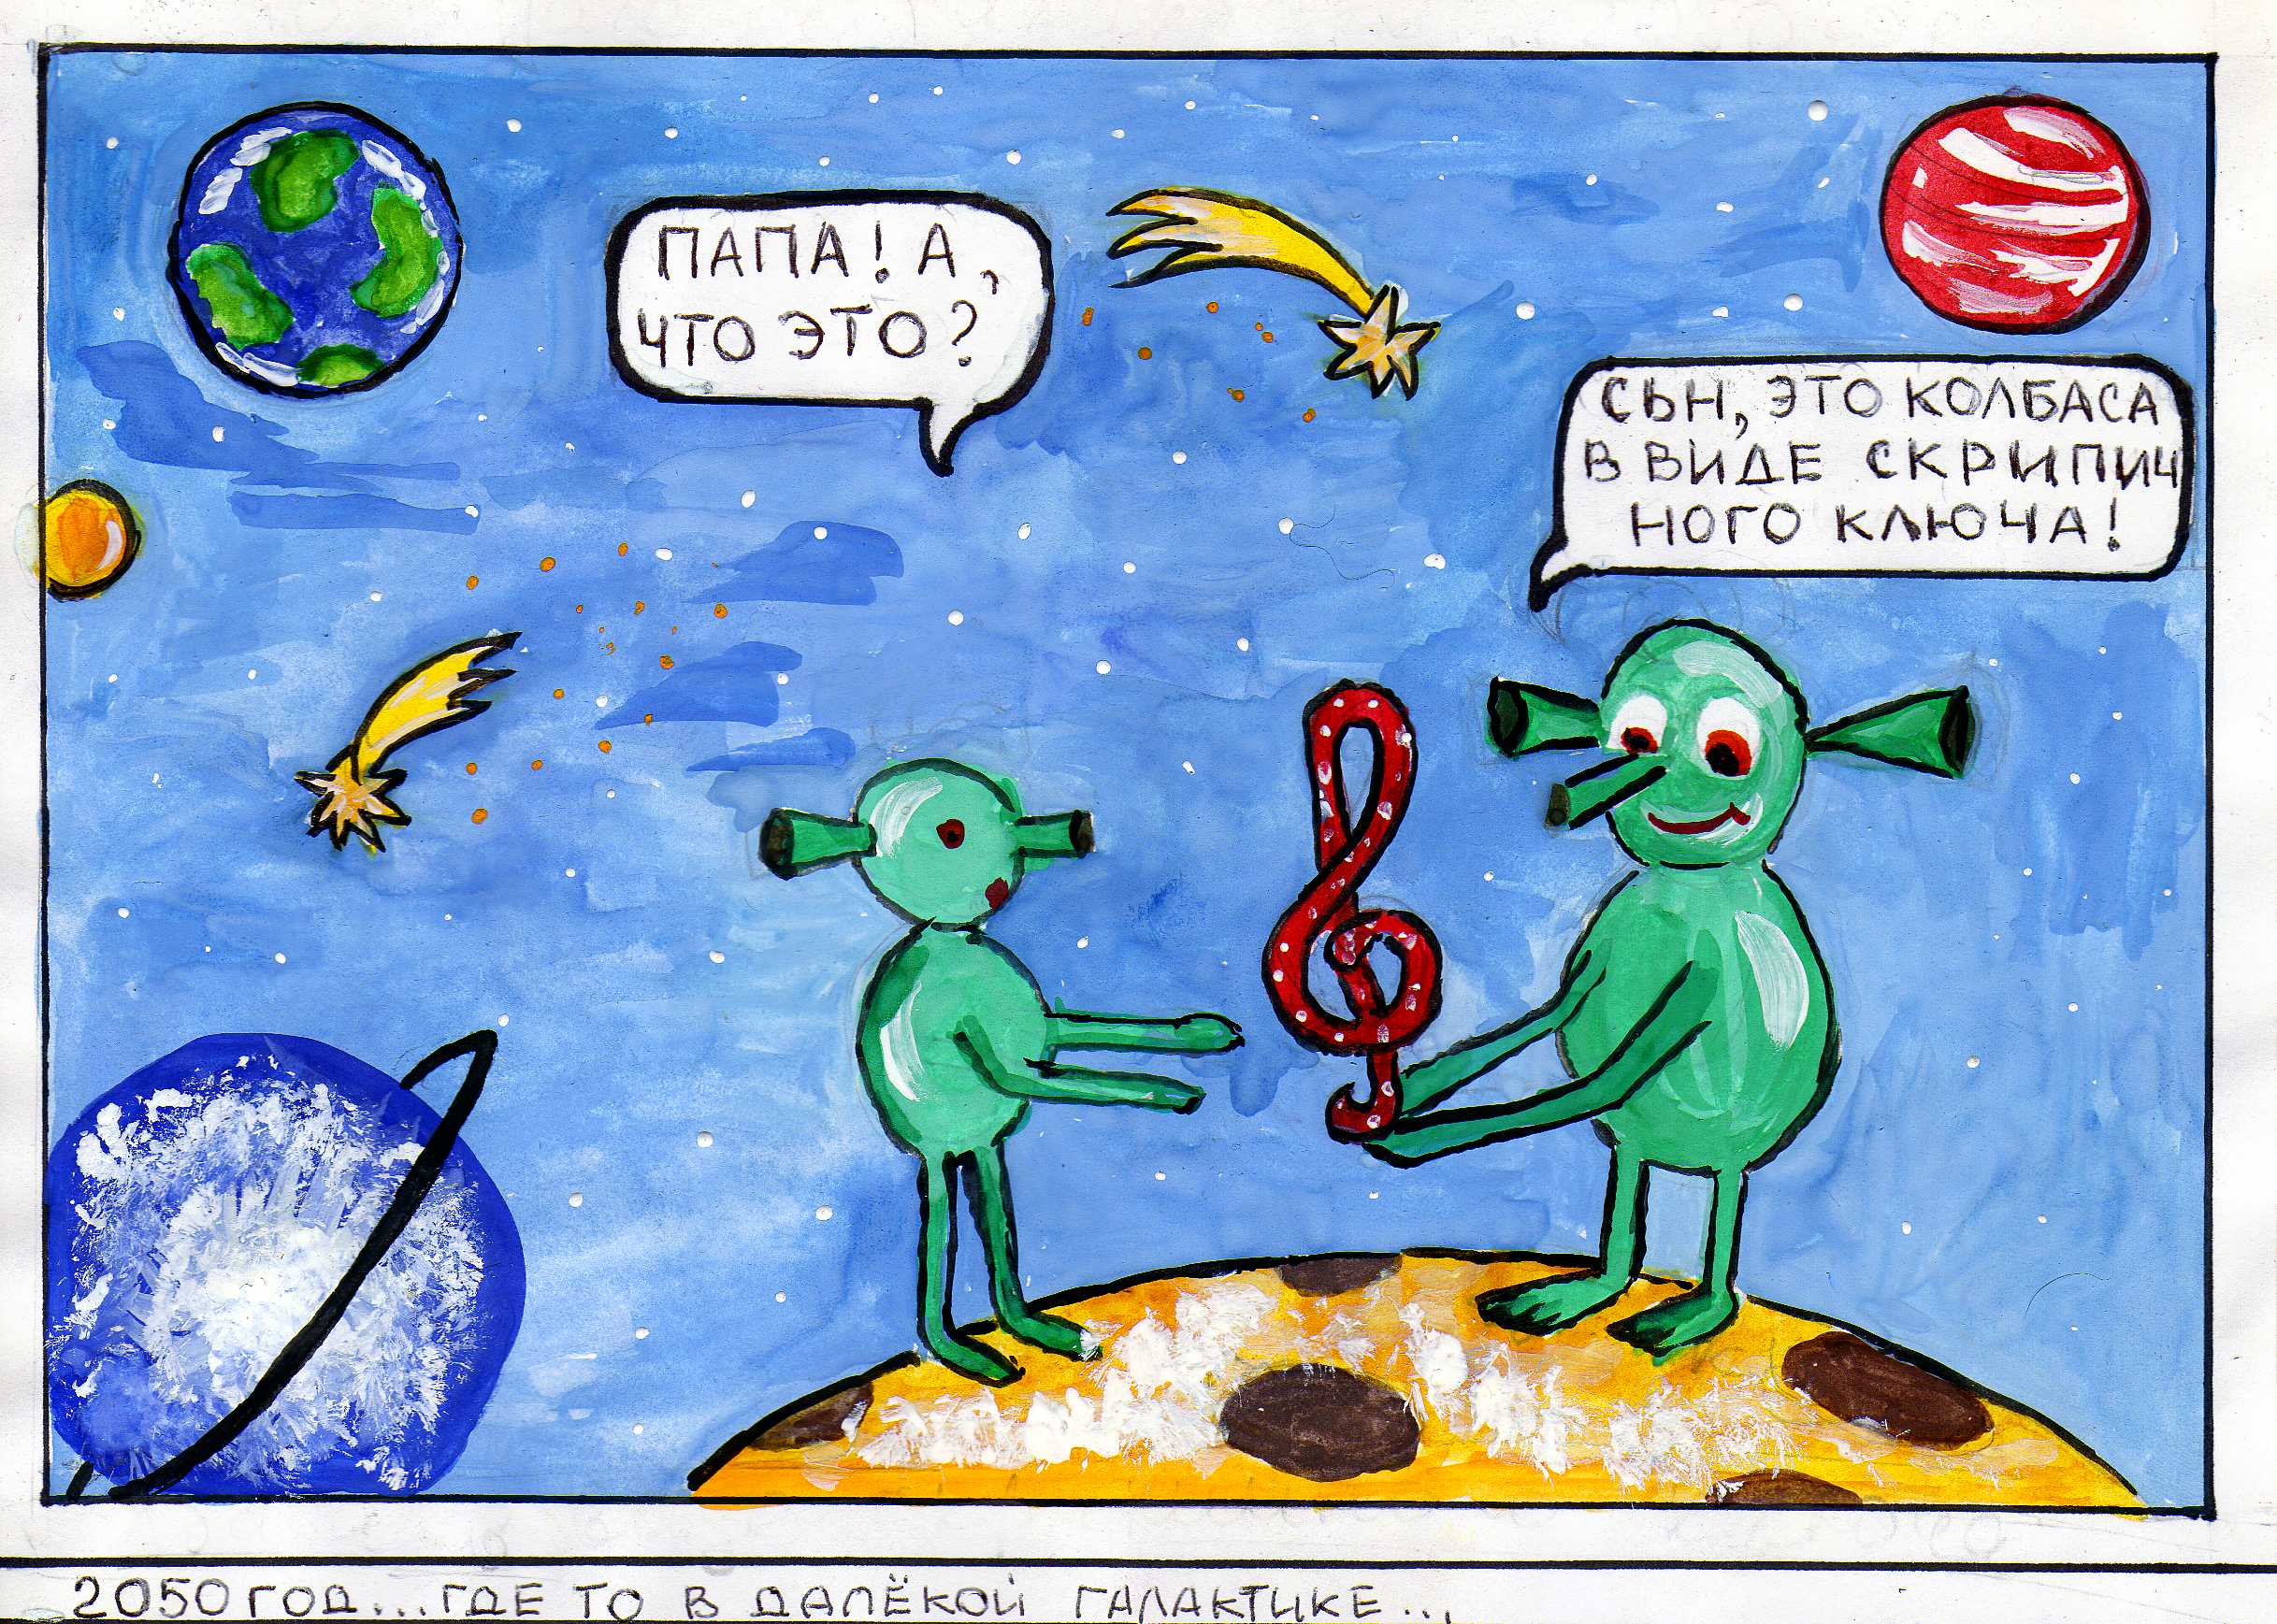 ПАПА! А,
ЧТО ЭТО?
СЫН, ЭТО КОЛБАСА
В ВИДЕ СКРИПИЧ
НОГО КЛЮЧА!
2050 ГОД... ГДЕ ТО В ДАЛЁКОЙ ГАЛАКТИКЕ...